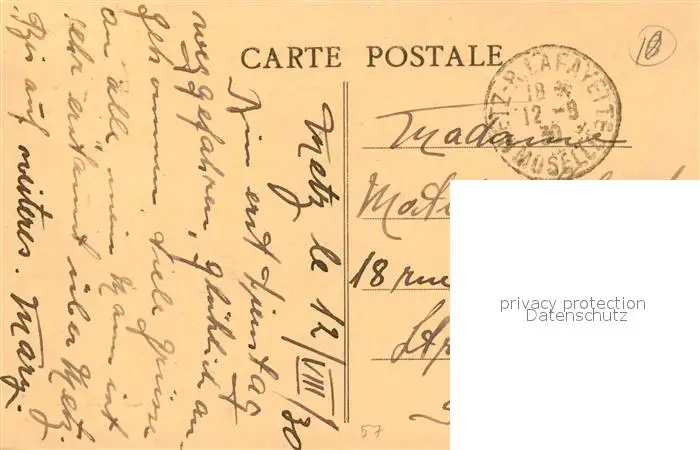 CARTE POSTALE
18
METZ-R. LAFAYETTE
18 *
12 - 8
30
MOSELLE
Metz le 12/VIII/30
Bin erst Dienstag
weggefahren, glücklich an-
gekommen. Viele Grüsse
an alle, mein Mann ist
sehr erstaunt über Metz.
Bis auf weiteres. Mary.
Madame
18 rue
57
privacy protection
Datenschutz